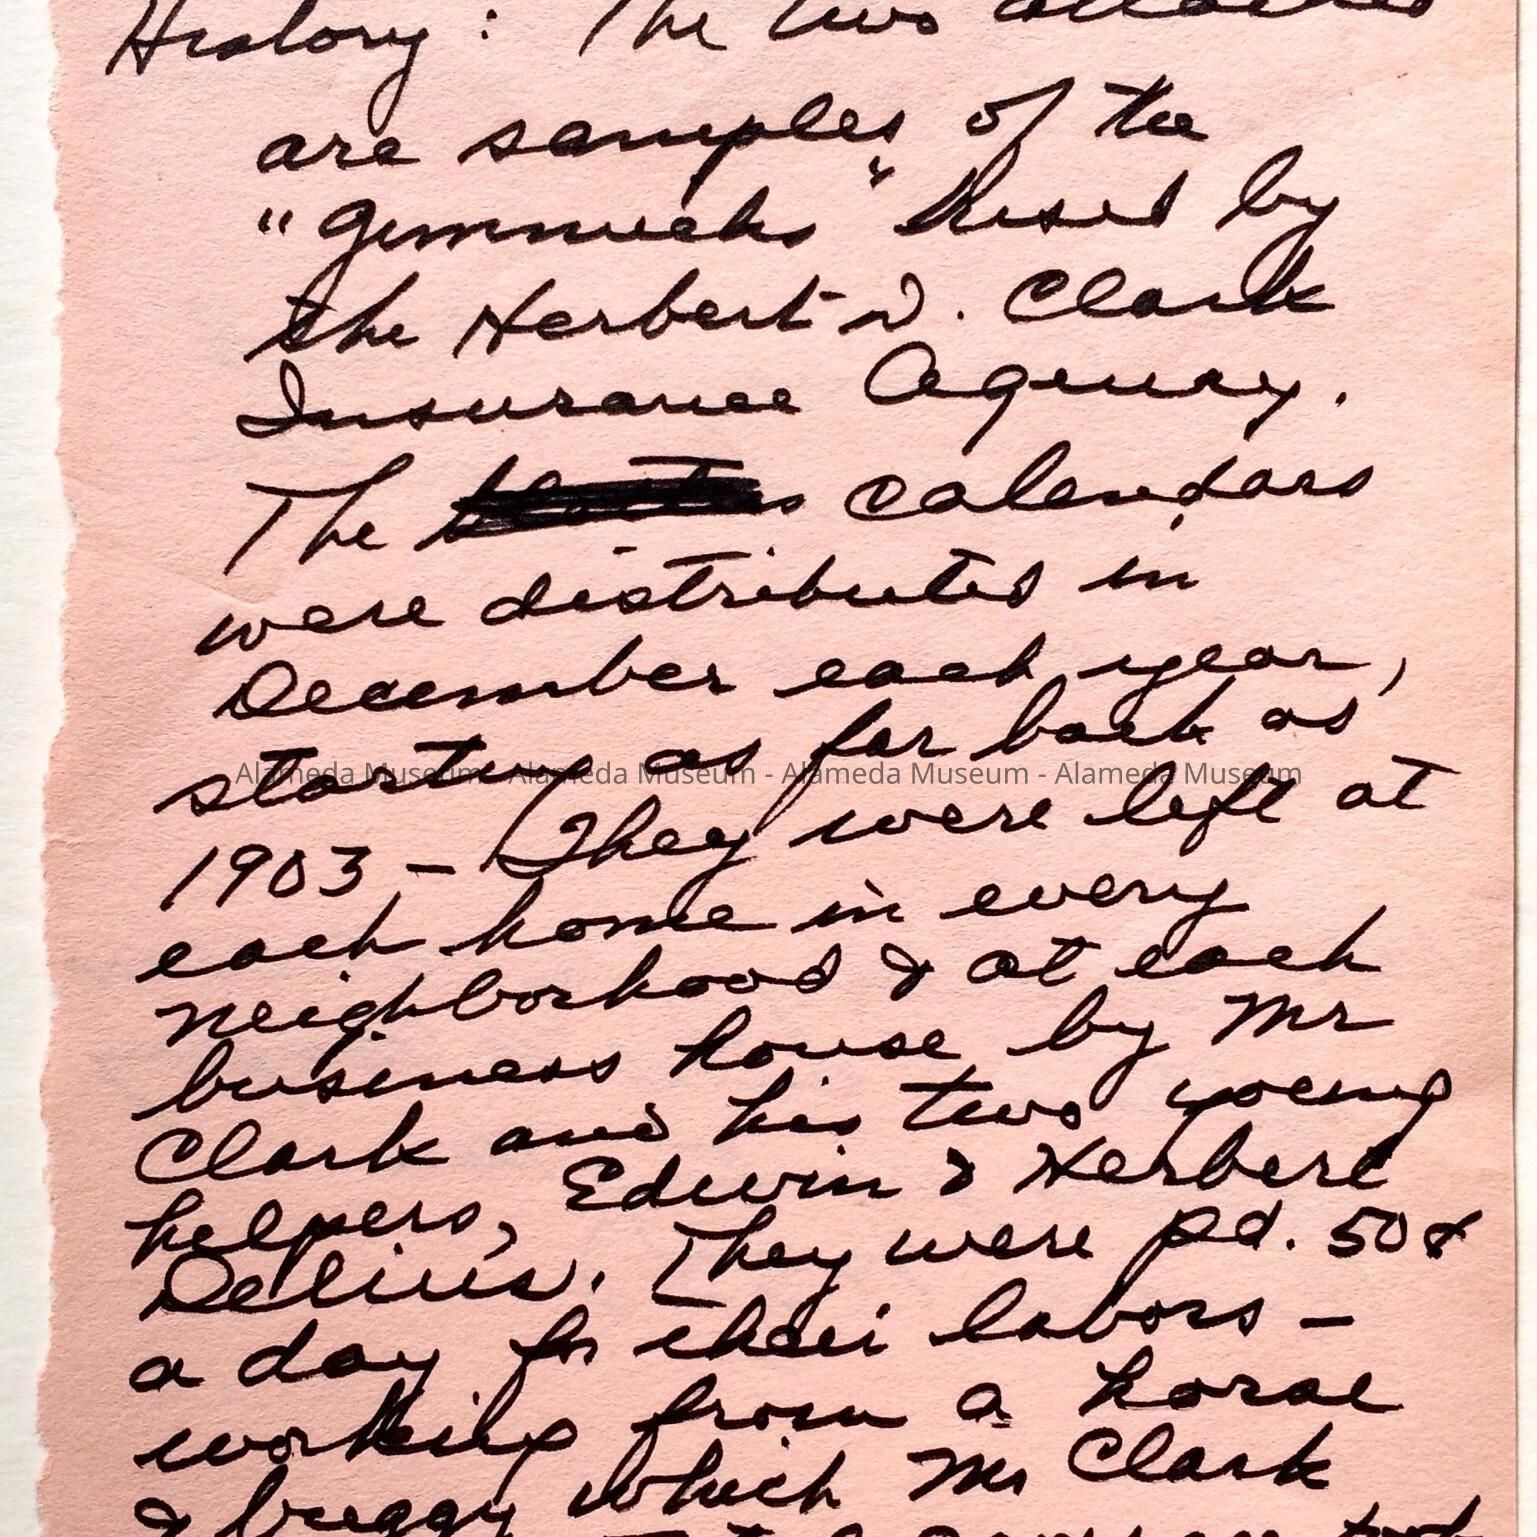 History: The two attached
are samples of the
"gimmicks" used by
the Herbert D. Clark
Insurance Agency.
The calendars
were distributed in
December each year,
starting as far back as
Alameda Museum - Alameda Museum - Alameda Museum - Alameda Museum
1903 - They were left at
each home in every
neighborhood & at each
business house by Mr
Clark and his two young
helpers, Edwin & Herbert
Delius. They were pd. 50¢
a day for their labors -
working from a horse
& buggy which Mr Clark